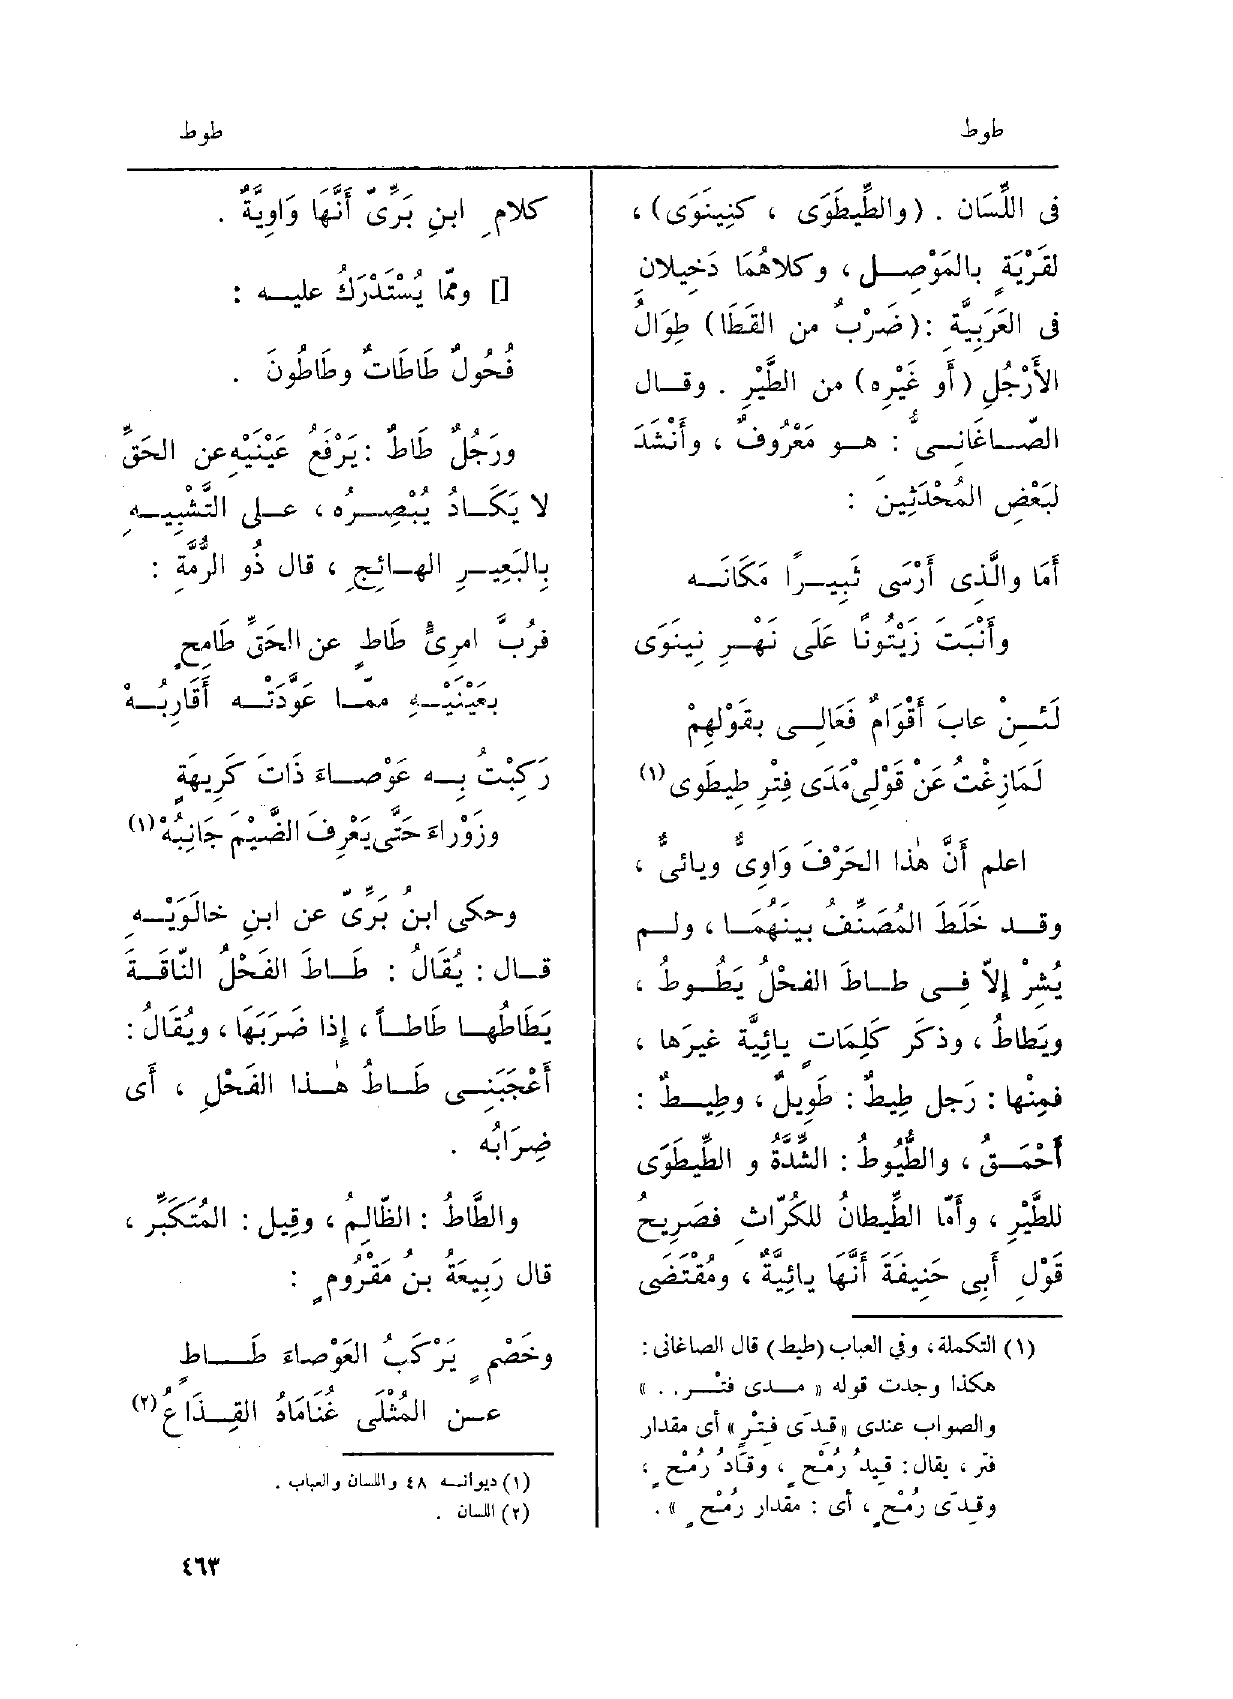 طوط
طوط
فى اللِّسَان . (والطِّيطَوَى ، كنِينَوَى) ،
لقَرْيَةٍ بالمَوْصِل ، وكلاهُمَا دَخِيلانِ
فى العَرَبِيَّةِ : (ضَرْبٌ من القَطَا) طِوَالُ
الأَرْجُلِ (أو غَيْرِه) من الطَّيْرِ . وقال
الصّاغَانِىُّ : هو مَعْرُوفٌ ، وأَنْشَدَ
لبَعْضِ المُحْدَثِينَ :
أَمَا والَّذِى أَرْسَى ثَبِيرًا مَكَانَه
وأَنْبَتَ زَيْتُونًا عَلَى نَهْرِ نِينَوَى
لَئِنْ عابَ أَقْوَامٌ فَعَالِى بقَوْلِهِمْ
لَمَا زِغْتُ عَنْ قَوْلِى مَدَى فِتْرِ طِيطَوى (١)
اعلم أَنَّ هٰذا الحَرْفَ وَاوِىٌّ ويائىٌّ ،
وقد خَلَطَ المُصَنِّفُ بينَهُمَا ، ولم
يُشِرْ إِلاّ فى طاطَ الفَحْلُ يَطُوطُ ،
ويَطاطُ ، وذكَر كَلِمَاتٍ يائِيَّة غيرَها ،
فمِنْها : رَجل طِيطٌ : طَوِيلٌ ، وطِيطٌ :
أَحْمَقُ ، والطُّيُوطُ : الشِّدَّةُ و الطِّيطَوَى
للطَّيْرِ ، وأَمّا الطِّيطانُ للكُرّاثِ فصَرِيحُ
قَوْلِ أَبِى حَنِيفَةَ أَنَّهَا يائِيَّةٌ ، ومُقْتَضَى
(١) التكملة ، وفى العباب (طيط) قال الصاغانى :
هكذا وجدت قوله « مدى فتر . . »
والصواب عندى « قِدَى فِتْرٍ » أى مقدار
فتر ، يقال : قِيدُ رُمْحٍ ، وقَادُ رُمْحٍ ،
وقِدَى رُمْحٍ ، أى : مقدار رُمْحٍ » .
كلامِ ابنِ بَرِّىّ أَنَّهَا وَاوِيَّةٌ .
[] وممّا يُسْتَدْرَكُ عليه :
فُحُولٌ طَاطَاتٌ وطَاطُونَ .
ورَجُلٌ طَاطٌ : يَرْفَعُ عَيْنَيْهِ عن الحَقِّ
لا يَكَادُ يُبْصِرُه ، على التَّشْبِيهِ
بالبَعِيرِ الهائِجِ ، قال ذُو الرُّمَّةِ :
فرُبَّ امرِئٍ طَاطٍ عن الحَقِّ طَامِحٍ
بعَيْنَيْهِ ممّا عَوَّدَتْه أَقَارِبُهْ
رَكِبْتُ بِه عَوْصَاءَ ذَاتَ كَرِيهَةٍ
وزَوْرَاءَ حَتَّى يَعْرِفَ الضَّيْمَ جَانِبُهْ (١)
وحكى ابنُ بَرِّىّ عن ابنِ خالَوَيْهِ
قال : يُقَالُ : طَاطَ الفَحْلُ النّاقَةَ
يَطَاطُها طَاطاً ، إِذا ضَرَبَهَا ، ويُقَالُ :
أَعْجَبَنِى طَاطُ هٰذا الفَحْلِ ، أَى
ضِرَابُه .
والطَّاطُ : الظّالِمُ ، وقِيلَ : المُتَكَبِّر ،
قال رَبِيعَةُ بنُ مَقْرُومٍ :
وخَصْمٍ يَرْكَبُ العَوْصاءَ طَاطٍ
عن المُثْلَى غُنَامَاهُ القِذَاعُ (٢)
(١) ديوانه ٤٨ واللسان والعباب .
(٢) اللسان .
٤٦٣